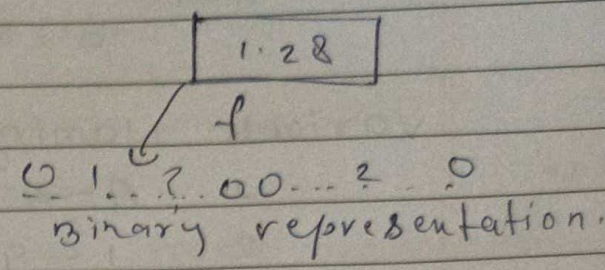 1.28
f
0 1...?..00...?..0
Binary representation.